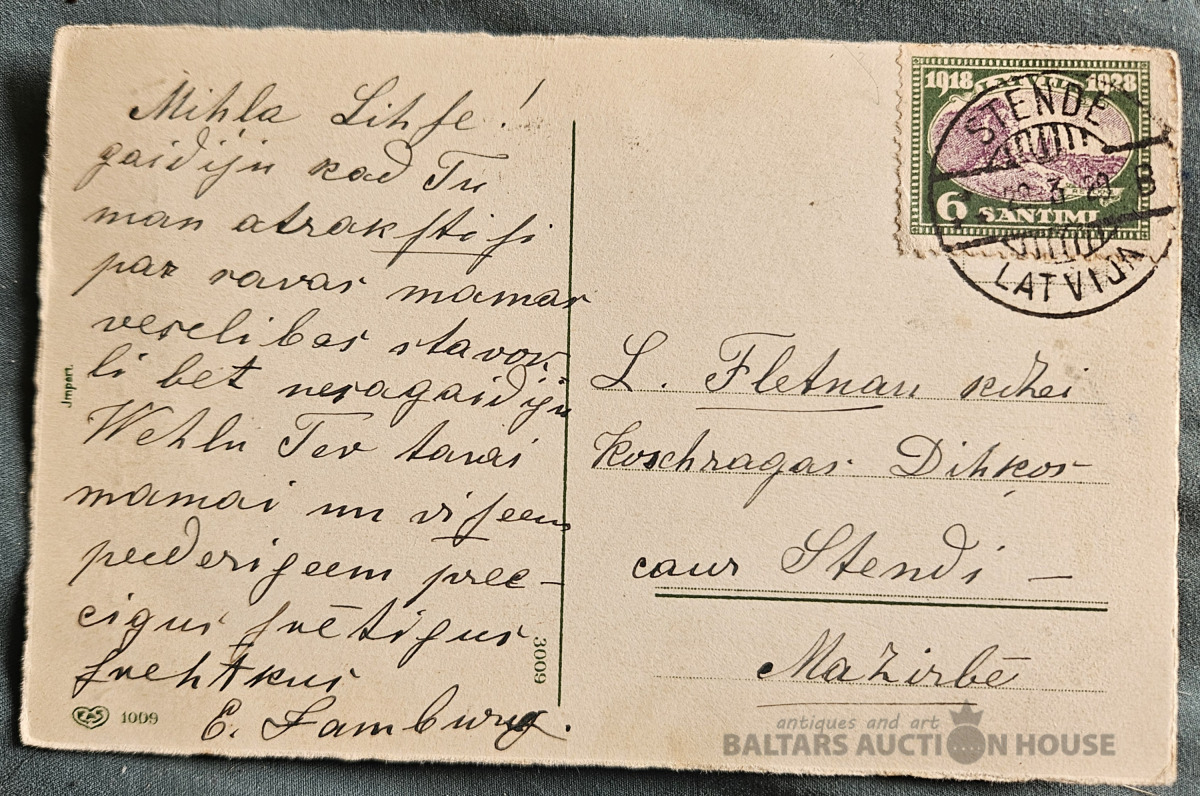 Mihla Lihse!
gaidiju kad Tu
man atrakstisi
par savas mamas
veselibas stavok
li bet nesagaidiju
Wehlu Tev tavai
mamai un viseem
peederigeem pree-
cigus svētigus
svehtkus
E. Lamburg.
Jmpert.
EAS 1009
3009
1918 LATVIJA 1928
6 SANTIMI
STENDE
29 3 29 B
LATVIJA
L. Fletnau kdzei
Koschragas Dihķos
caur Stendi –
Mazirbē
antiques and art
BALTARS AUCTION HOUSE